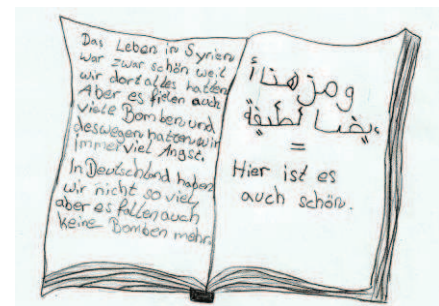 Das Leben in Syrien
war zwar schön weil
wir dort alles hatten
Aber es fielen auch
viele Bomben und
deswegen hatten wir
immer viel Angst.
In Deutschland haben
wir nicht so viel,
aber es fallen auch
keine Bomben mehr.
ومن هنا أ
يضا لطيفة
=
Hier ist es
auch schön.